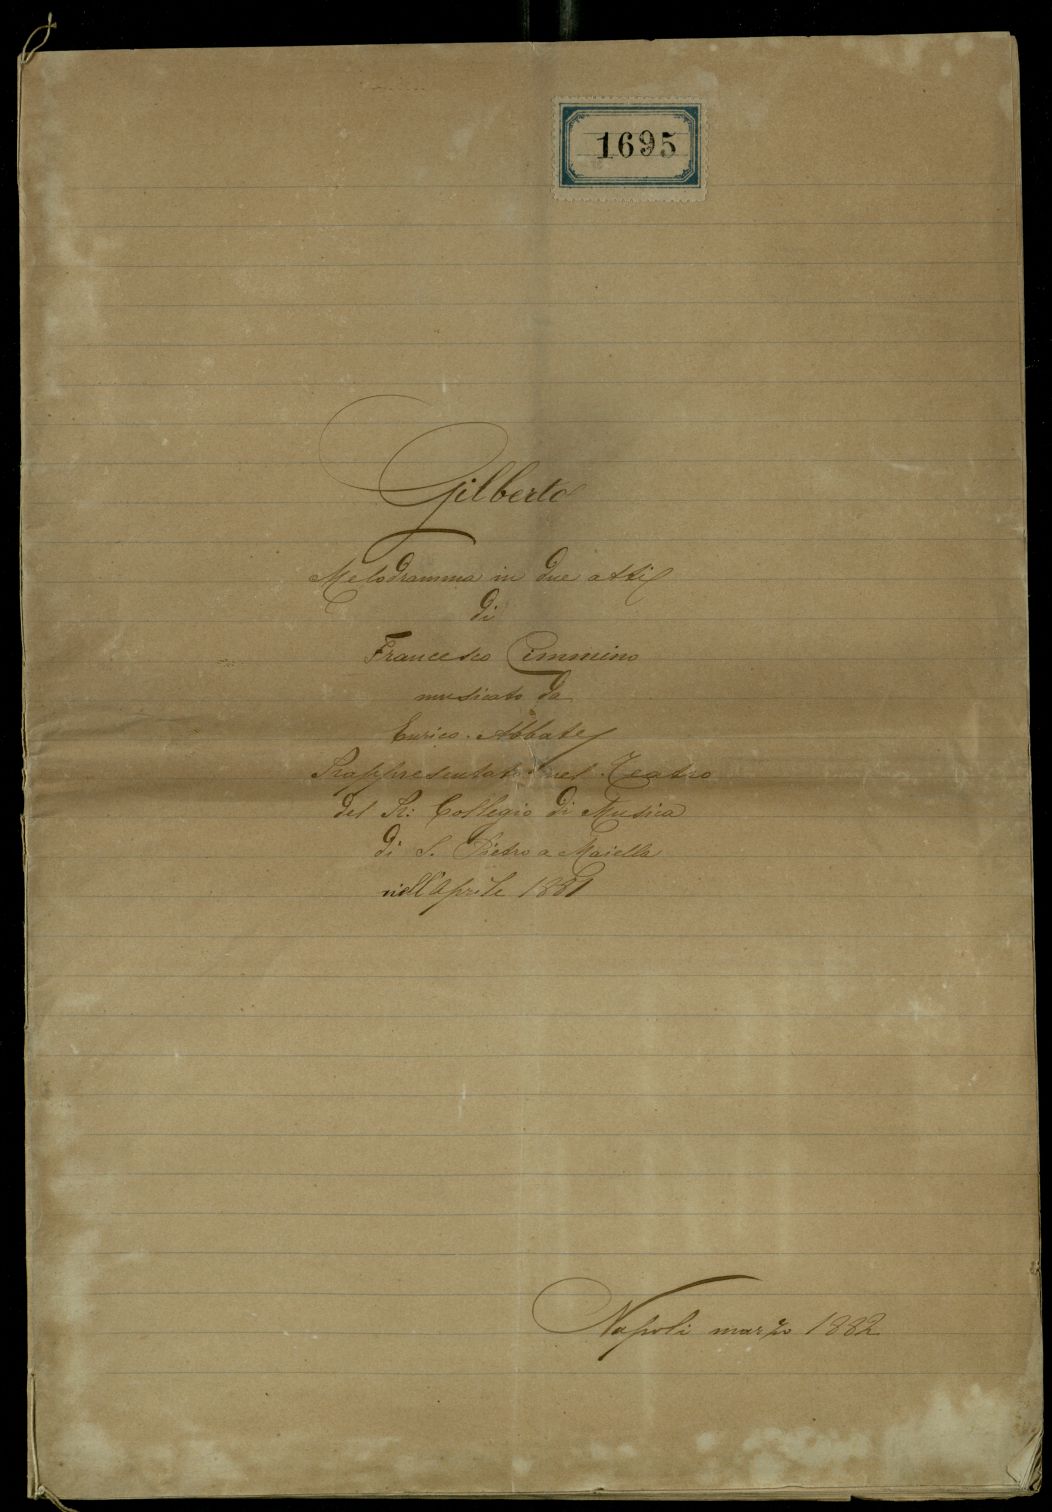 1695
Gilberto
Melodramma in due atti
di
Francesco Cimmino
musicato da
Enrico Abbate
Rappresentato nel Teatro
del R: Collegio di Musica
di S. Pietro a Maiella
nell'Aprile 1881
Napoli marzo 1882